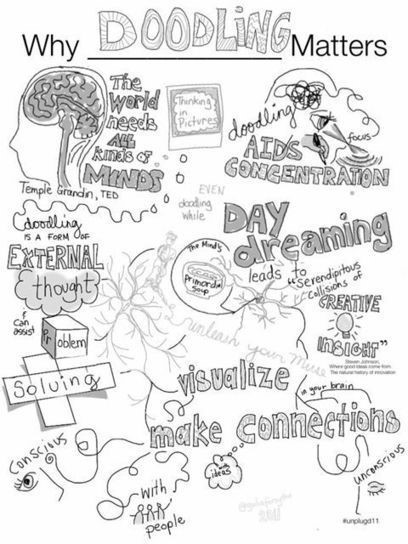 Why DOODLING Matters
The
World
needs
ALL
kinds of
MINDS
Temple Grandin, TED
Thinking
in
Pictures
doodling
AIDS
focus
CONCENTRATION
EVEN
doodling
while
DAY
dreaming
leads to
"Serendipitous
Collisions of
CREATIVE
INSIGHT"
Steven Johnson,
Where good ideas come from.
The natural history of innovation
doodling
IS A FORM OF
EXTERNAL
thought
& can
assist
Problem
Solving
The Mind's
Primordial
Soup
unleash your Muse
visualize
in your brain
make connections
Conscious
unconscious
with
people
with
ideas
2011
#unplugd11